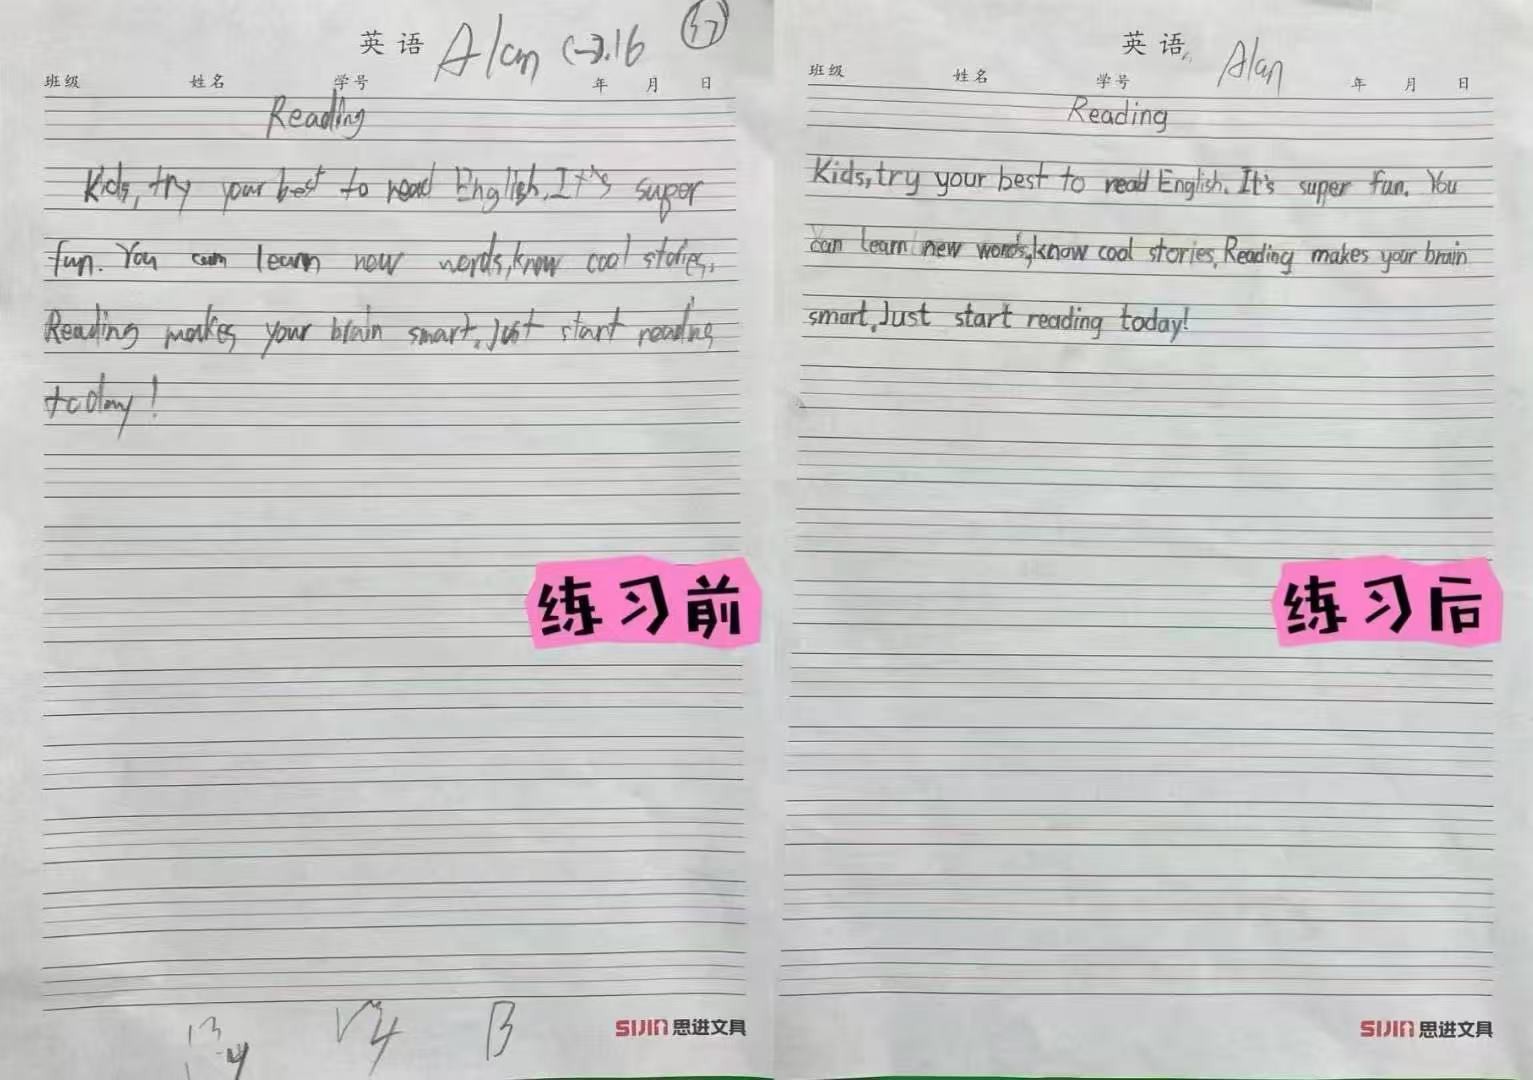 英语 Alan
班级 姓名 学号 年 月 日
Reading
Kids, try your best to read English. It's super
fun. You can learn new words, know cool stories.
Reading makes your brain smart. Just start reading
today!
练习前
B
SIJIN 思进文具
英语 Alan
班级 姓名 学号 年 月 日
Reading
Kids, try your best to read English. It's super fun. You
can learn new words, know cool stories. Reading makes your brain
smart. Just start reading today!
练习后
SIJIN 思进文具